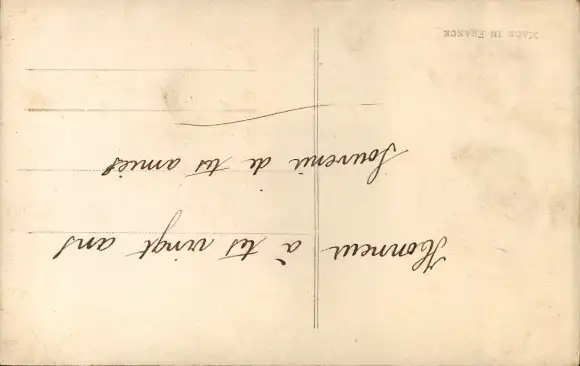 Honneur à tes vingt ans
Souvenir de tes amies
MADE IN FRANCE